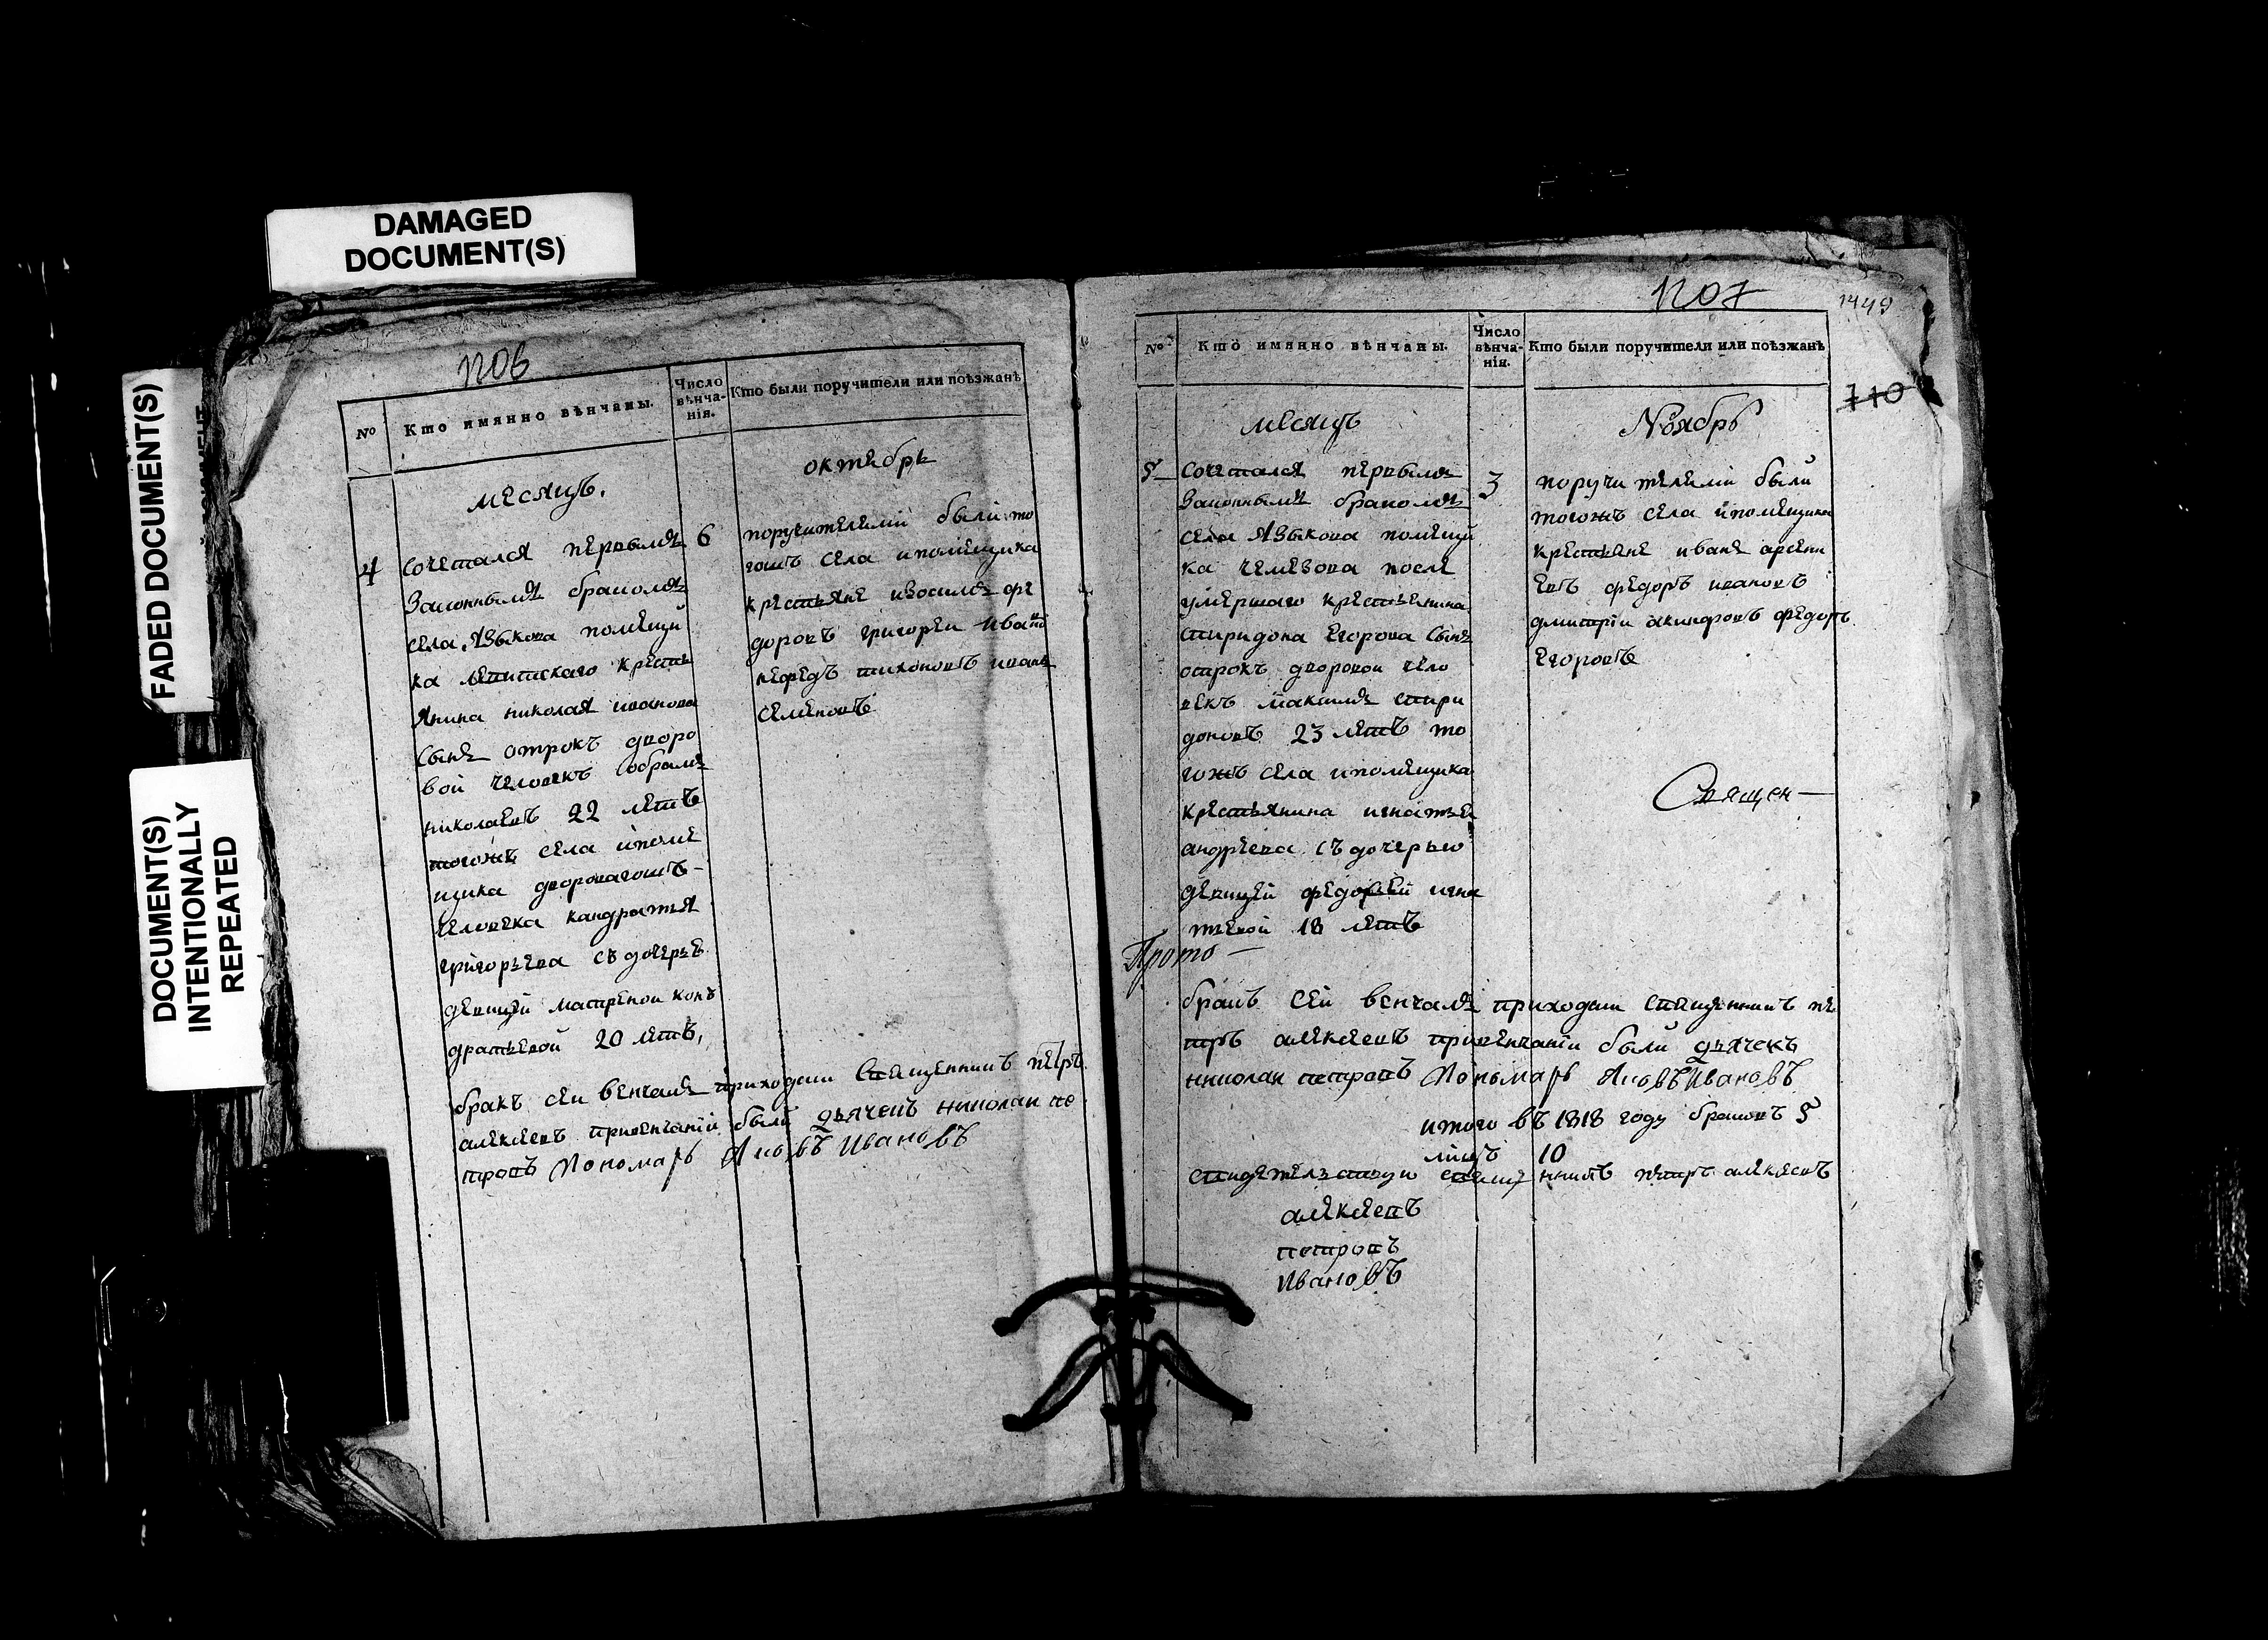 DAMAGED
DOCUMENT(S)
FADED DOCUMENT(S)
DOCUMENT(S)
INTENTIONALLY
REPEATED
1206
№
Кто имянно вѣнчаны.
Число
вѣнча-
нія.
Кто были поручители или поѣзжанѣ
месяцъ.
октебрь
4
сочетался первымъ
законнымъ бракомъ
села Языкова помещи
ка
крестъ
янина николая иванова
сынъ отрокъ дворо
вой человекъ
николаевъ 22 летъ
тогожъ села ипоме
щика
человека кандратья
григорьева съ дочерье
девицей матреной кон
дратьевой 20 летъ,
6
поручителеми были то
гожъ села ипомещика
крестьяне изосимъ фе
доровъ григореи ивано
нефедъ тихоновъ иванъ
семеновъ
бракъ сеи венчалъ приходски священникъ петръ
алексеевъ привенчании были дьячекъ николаи пе
тровъ Пономарь Яковъ Ивановъ
1207
1449
710
№
Кто имянно вѣнчаны.
Число
вѣнча-
нія.
Кто были поручители или поѣзжанѣ
месяцъ
Ноябрь
5
сочетался первымъ
законнымъ бракомъ
села Языкова помещи
ка чемезова после
умершаго крестьенина
спиридона егорова сынъ
отрокъ дворовои чело
векъ максимъ спири
доновъ 23 летъ то
гожъ села ипомещика
крестьянина игнатья
андреева съ дочерью
девицей федорой игна
тьевой 18 летъ
3
поручителеми были
тогожъ села ипомещика
крестьяне иванъ арсени
евъ федоръ ивановъ
дмитрии акинфовъ федоръ
егоровъ
Священ—
Прото—
бракъ сеи венчалъ приходски священникъ пе
тръ алексеевъ привенчании были дьячекъ
николаи петровъ Пономарь Яковъ Ивановъ
итого въ 1818 году браковъ 5
лицъ 10
свидетелствую священникъ петръ алексеевъ
алексеевъ
петровъ
Ивановъ